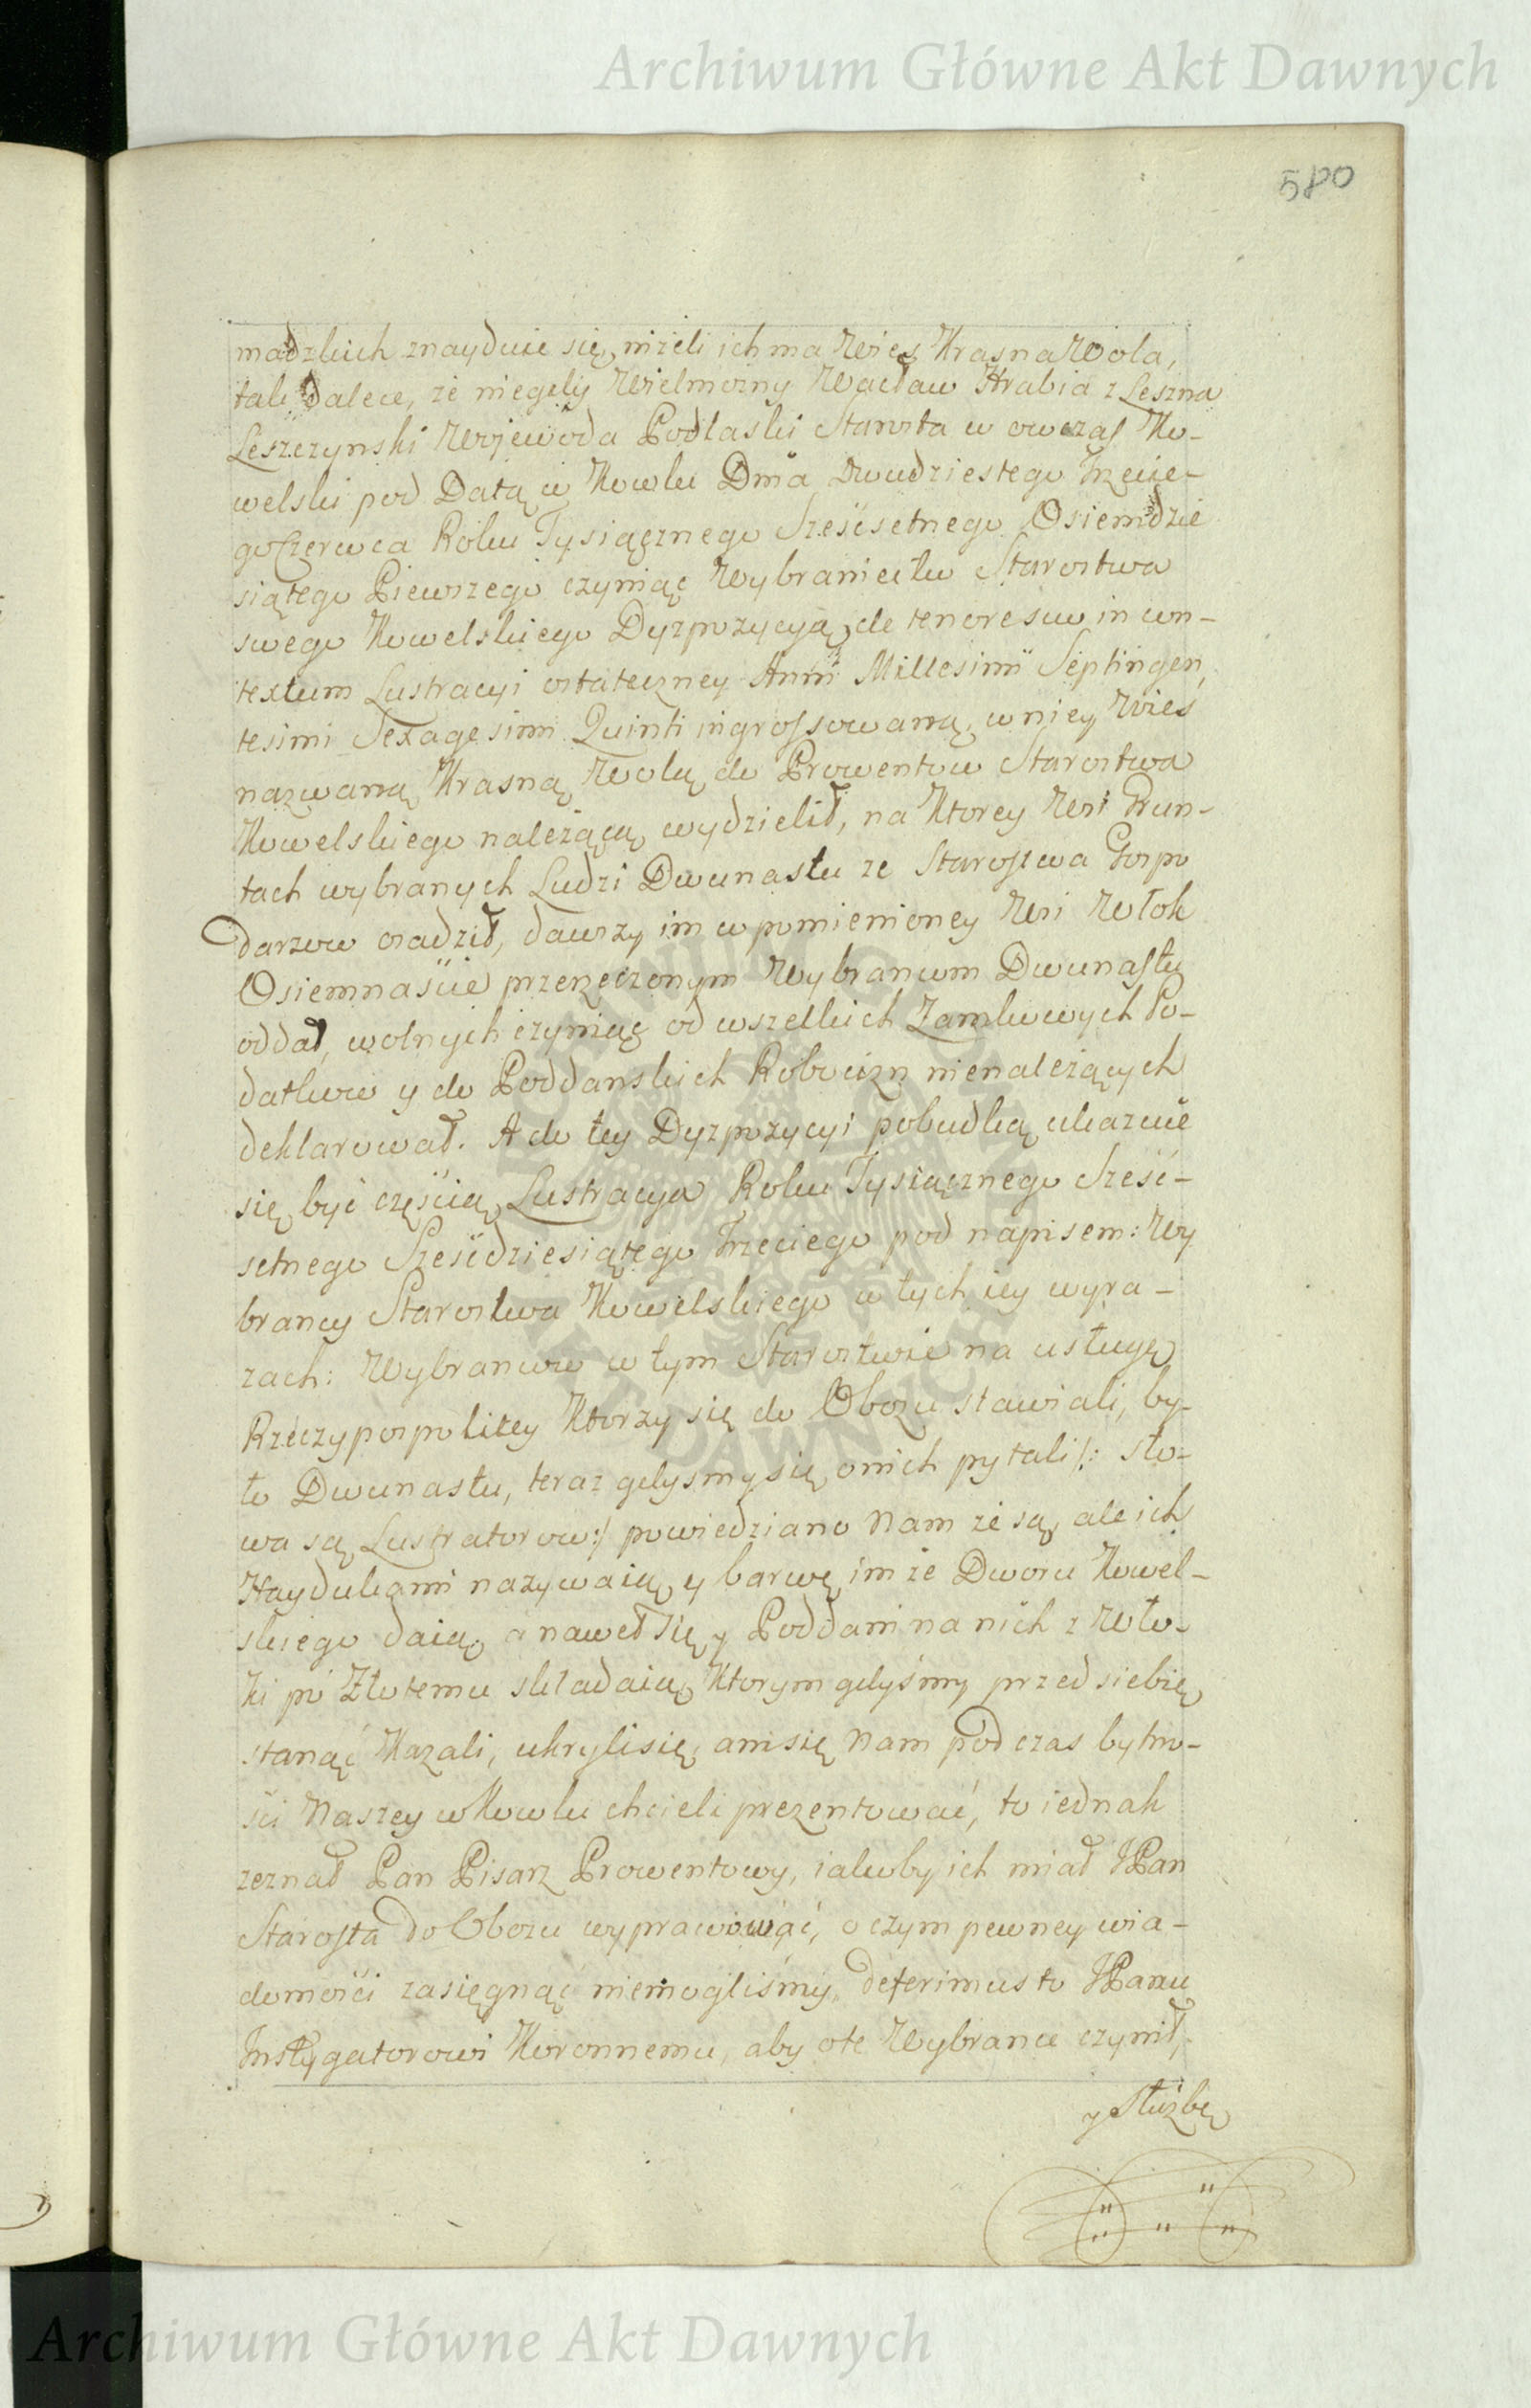 Archiwum Główne Akt Dawnych
580
madzkich znayduie się, niżeli ich ma Wieś Krasna Wola,
tak dalece, że niegdy Wielmożny Wacław Hrabia z Leszna
Leszczynski Wojewoda Podlaski Starosta w owczas Ko-
welski pod Datą w Kowlu Dnia Dwudziestego Trzecie-
go Czerwca Roku Tysiącznego Sześćsetnego Osiemdzie
siątego Pierwszego czyniąc Wybraniectw Starostwa
swego Kowelskiego Dyzpozycyą, de tenore suo in con-
textum Lustracyi ostateczney Anni Millesimi Septingen,
tesimi Sexagesimi Quinti ingrossowaną, w niey Wieś
nazwaną Krasną Wolą do Prowentow Starostwa
Kowelskiego należącą wydzielił, na Ktorey Wsi Grun-
tach wybranych Ludzi Dwunastu ze Starostwa Gospo
darzow osadził, dawszy im w pomienioney Wsi Włok
Osiemnaście przerzeczonym Wybrancom Dwunastu
oddał, wolnych czyniąc od wszelkich Zamkowych Po-
datkow y do Poddanskich Robocizn nienależących
deklarował. A do tey Dyzpozycyi pobudką ukazuie
się być częścią Lustracya Roku Tysiącznego Sześć-
setnego Sześćdziesiątego Trzeciego pod napisem: Wy
brancy Starostwa Kowelskiego w tych iey wyra-
zach: Wybrancow w tym Starostwie na usługę
Rzeczypospolitey Ktorzy się do Obozu stawiali, by-
ło Dwunastu, teraz gdysmy się o nich pytali /: sło-
wa są Lustratorow :/ powiedziano Nam że są, ale ich
Haydukami nazywaią y barwę im ze Dworu Kowel-
skiego daią, a nawet się y Poddani na nich z Wło-
ki po Złotemu składaią, Ktorym gdyśmy przed siebie
stanąć Kazali, ukryli się, ani się Nam pod czas bytno-
ści Naszey w Kowlu chcieli prezentować, to iednak
zeznał Pan Pisarz Prowentowy, iakoby ich miał JPan
Starosta do Obozu wyprawować, o czym pewney wia-
domości zasięgnąć niemogliśmy, deferimus to JPanu
Instygatorowi Koronnemu, aby o te Wybrance czynił,
y Służbę
Archiwum Główne Akt Dawnych